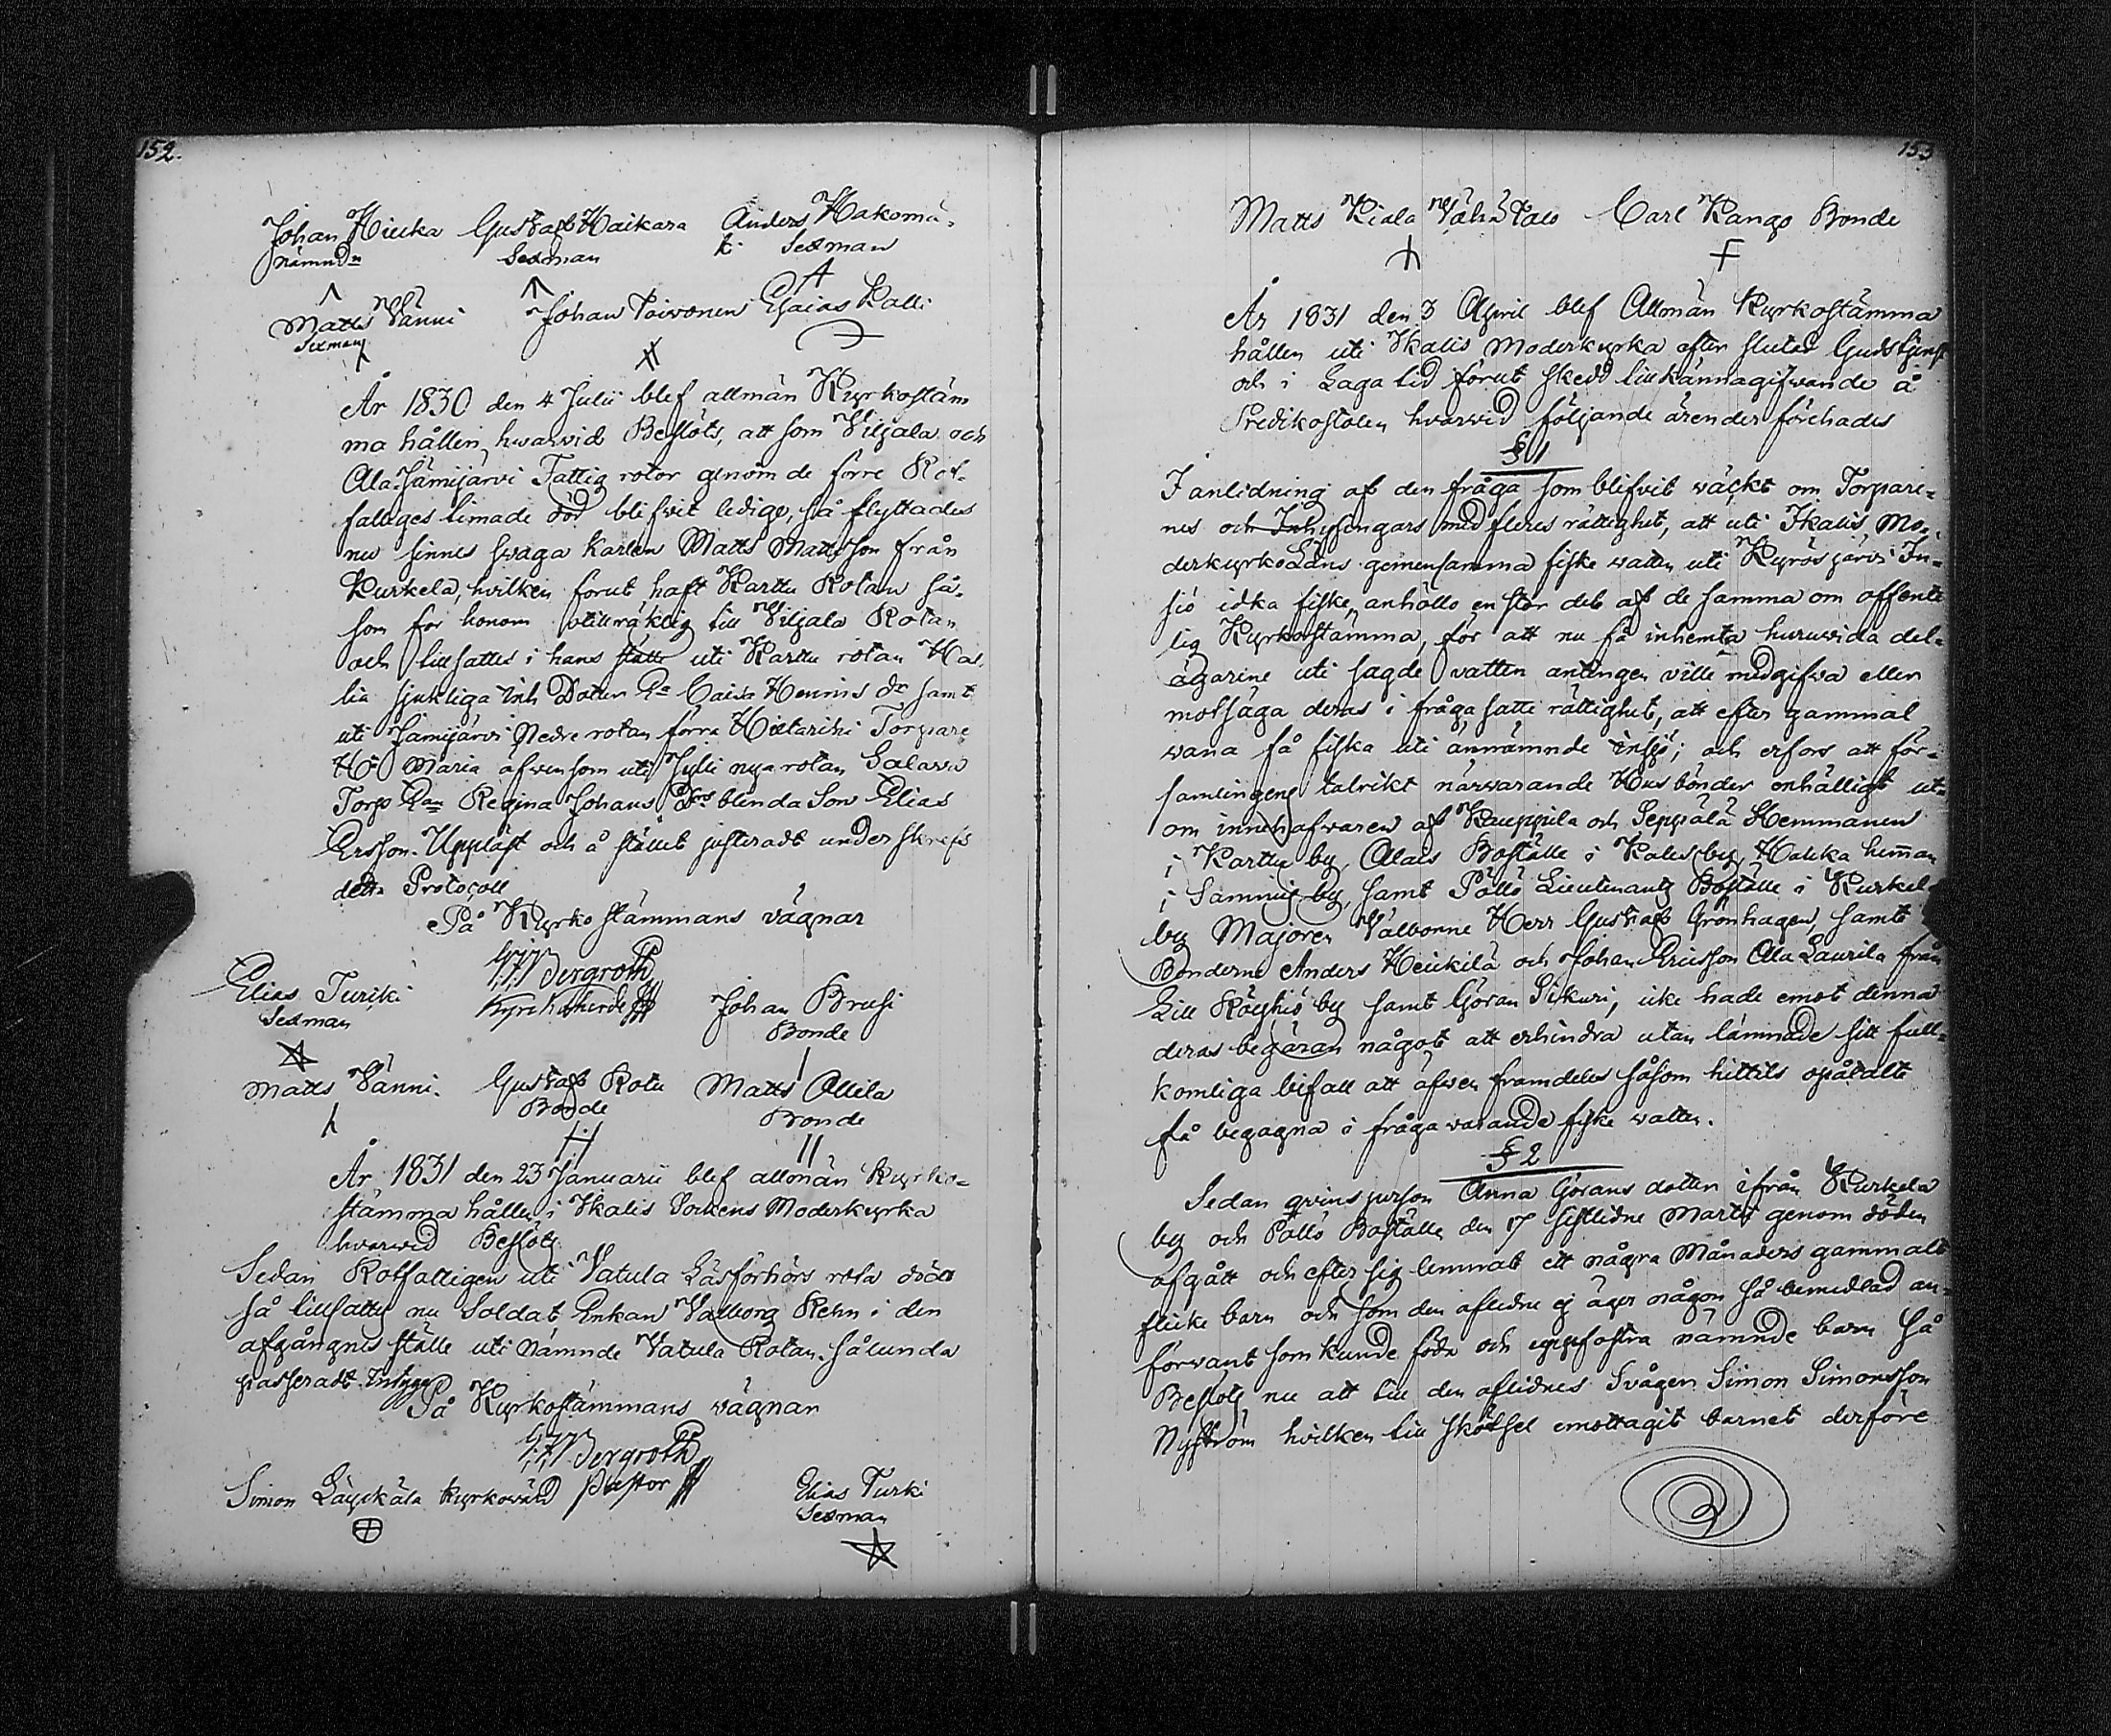 152.
Johan Hiucka Gustaf Haikara Anders Hakomä-
Nämndn Sexman ki Sexman
Matts Vänni Johan Toivonen Esaias Kalli
Sexman
År 1830 den 4 Julii blef allmän Kyrkostäm
ma hållen, hvarvid Beslöts, att som Viljala och
Ala Jämijärvi Fattig rotor genom de förre Rot-
fattiges timade död blifvit ledige, så flyttades
nu sinnes svaga Karlen Matts Mattsson från
Kurkela, hvilken förut haft Karttu Rotan så-
som för honom otillräklig till Viljala Rotan
och tillsattes i hans ställe uti Karttu rotan
sjukliga Inh Dotter Caisa Henrics dr samt
uti Jämijärvi Nedre rotan förra Hietarihi Torpare
Maria äfvensom uti nya rotan
Torp Regina Johans Drs blinda Son Elias
Ersson. Uppläst och å stället justeradt underskrefs
detta Protocoll
På Kyrko stämmans vägnar
Bergroth
Kyrkoherde
Elias Turiki Johan Brusi
Sexman Bonde
Matts Vänni. Gustaf Rotu Matts Ollila
Bonde Bonde
År 1831 den 23 Januarii blef allmän Kyrko-
stämma hållen i Ikalis Sockens Moderkyrka
hvarvid Beslöts
Sedan Rotfattigen uti Vatula Läsförhörs rota dödt
så tillsattes nu Soldat Enkan Valborg Rehn i den
afgångnes ställe uti nämnde Vatula Rotan. Sålunda
passeradt Intyga
På Kyrkostämmans vägnar
Bergroth
Pastor
Simon Kyrkovärd Elias Turki
Sexman
153
Matts Kiala Vähä Talo Carl Kango Bonde
År 1831 den 3 April blef Allmän Kyrkostämma
hållen uti Ikalis Moderkyrka efter slutad Gudstjenst
och i Laga tid förut skedd tillkännagifvande å
Predikostolen hvarvid följande ärender förehades
§ 1
I anledning af den fråga som blifvit väckt om Torpare-
nes och Inhysingars med fleres rättighet, att uti Ikalis Mo-
derkyrko Läns gemensamma fiske vatten uti Kyrösjärvi In-
sjö idka fiske, anhölls en stor del af de samma om offent-
lig Kyrkostämma, för att nu få inhemta huruvida del-
ägarine uti sagde vatten antingen ville medgifva eller
motsäga deras i fråga satte rättighet, att efter gammal
vana få fiska uti omnämnde insjö; och erfors att för-
samlingens talrikt närvarande Husbönder enhälligt ut-
om innehafvaren af Kauppila och Seppälä Hemmanen
i Karttu by, Alais Boställe i Kalis by, Hakka heman
i by, samt Pöllö Lieutenants Boställe i Kurkela
by Majoren Välborne Herr Gustaf Grönhagen, samt
Bönderne Anders Heickilä och Johan Ericsson Ala Laurila från
Lill Röyhiö by samt Göran Sikuri, icke hade emot denna
deras begäran något att erhindra utan lämnade sitt full-
komliga bifall att äfven framdeles såsom hittils opåtalt
få begagna i fråga varande fiske vatten.
§ 2
Sedan qvins person Anna Görans dotter ifrån Kurkela
by och Pöllö Boställe den 17 sistledne Martii genom döden
afgått och efter sig lemnat ett några Månaders gammalt
flicke barn och som den aflidne ej äger någon så bemedlad an-
förvant som kunde föda och uppfostra nämnde barn Så
Beslöts nu att till den aflidnes Svåger Simon Simonsson
Nyström hvilken till skötsel emottagit barnet derföre